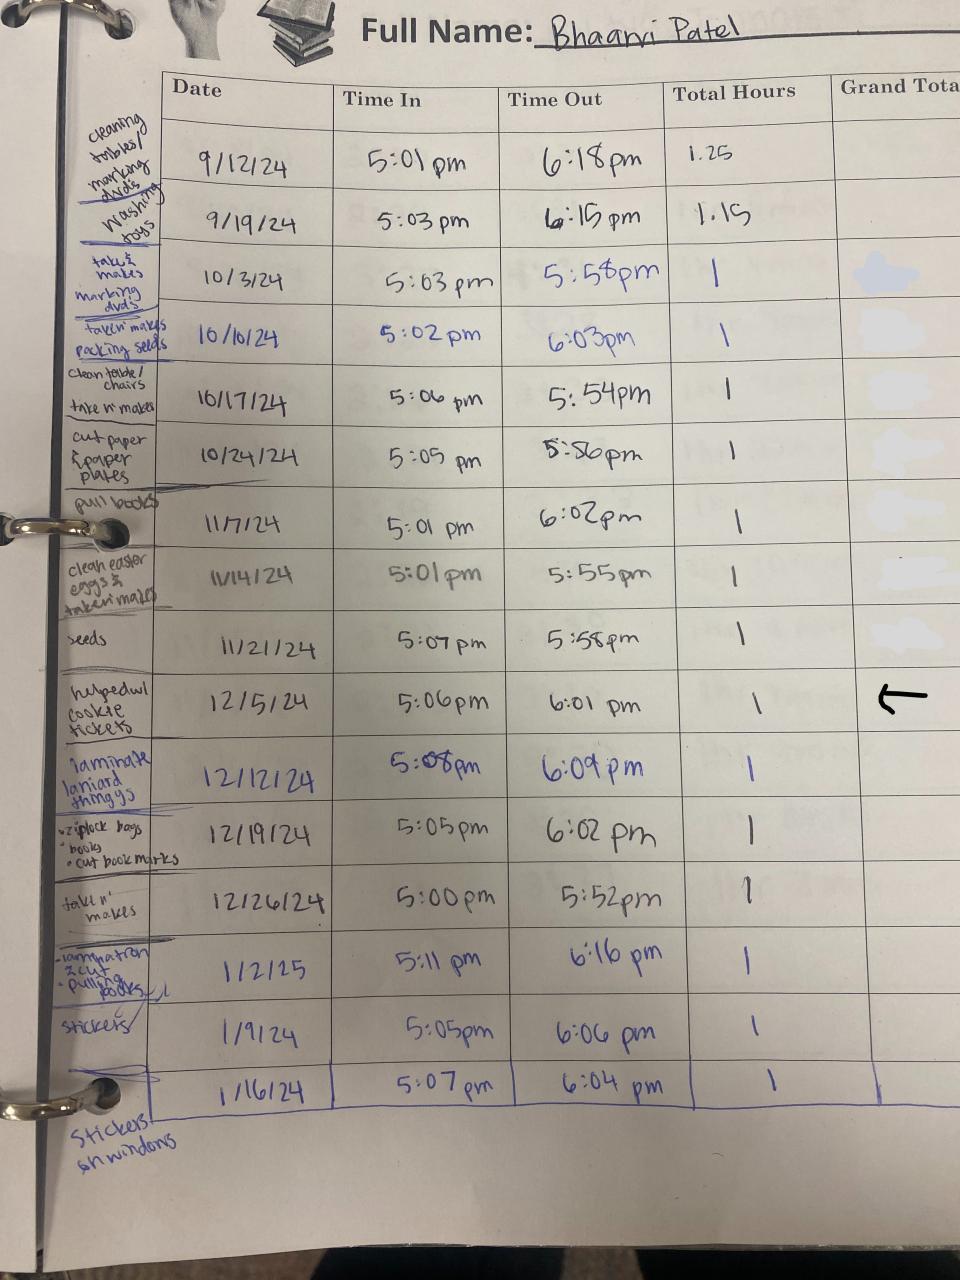 Full Name: Bhaanvi Patel
Date Time In Time Out Total Hours Grand Tota
cleaning
tables/
marking
dvds
9/12/24 5:01 pm 6:18 pm 1.25
washing
toys
9/19/24 5:03 pm 6:15 pm 1.15
take &
makes
marking
dvds
10/3/24 5:03 pm 5:58pm 1
take n' makes
packing seeds
10/10/24 5:02 pm 6:03pm 1
clean table/
chairs
take n' makes
10/17/24 5:06 pm 5:54pm 1
cut paper
& paper
plates
10/24/24 5:05 pm 5:56pm 1
pull books
11/7/24 5:01 pm 6:02pm 1
clean easter
eggs &
take n' makes
11/14/24 5:01pm 5:55pm 1
seeds
11/21/24 5:07pm 5:58pm 1
helped w/
cookie
tickets
12/5/24 5:06pm 6:01 pm 1
laminate
laniard
thinggs
12/12/24 5:08pm 6:09 pm 1
• ziplock bags
• books
• cut book marks
12/19/24 5:05pm 6:02 pm 1
take n'
makes
12/26/24 5:00pm 5:52pm 1
& cut
• pulling
books
1/2/25 5:11 pm 6:16 pm 1
stickers
1/9/24 5:05pm 6:06 pm 1
1/16/24 5:07 pm 6:04 pm 1
stickers
on windows